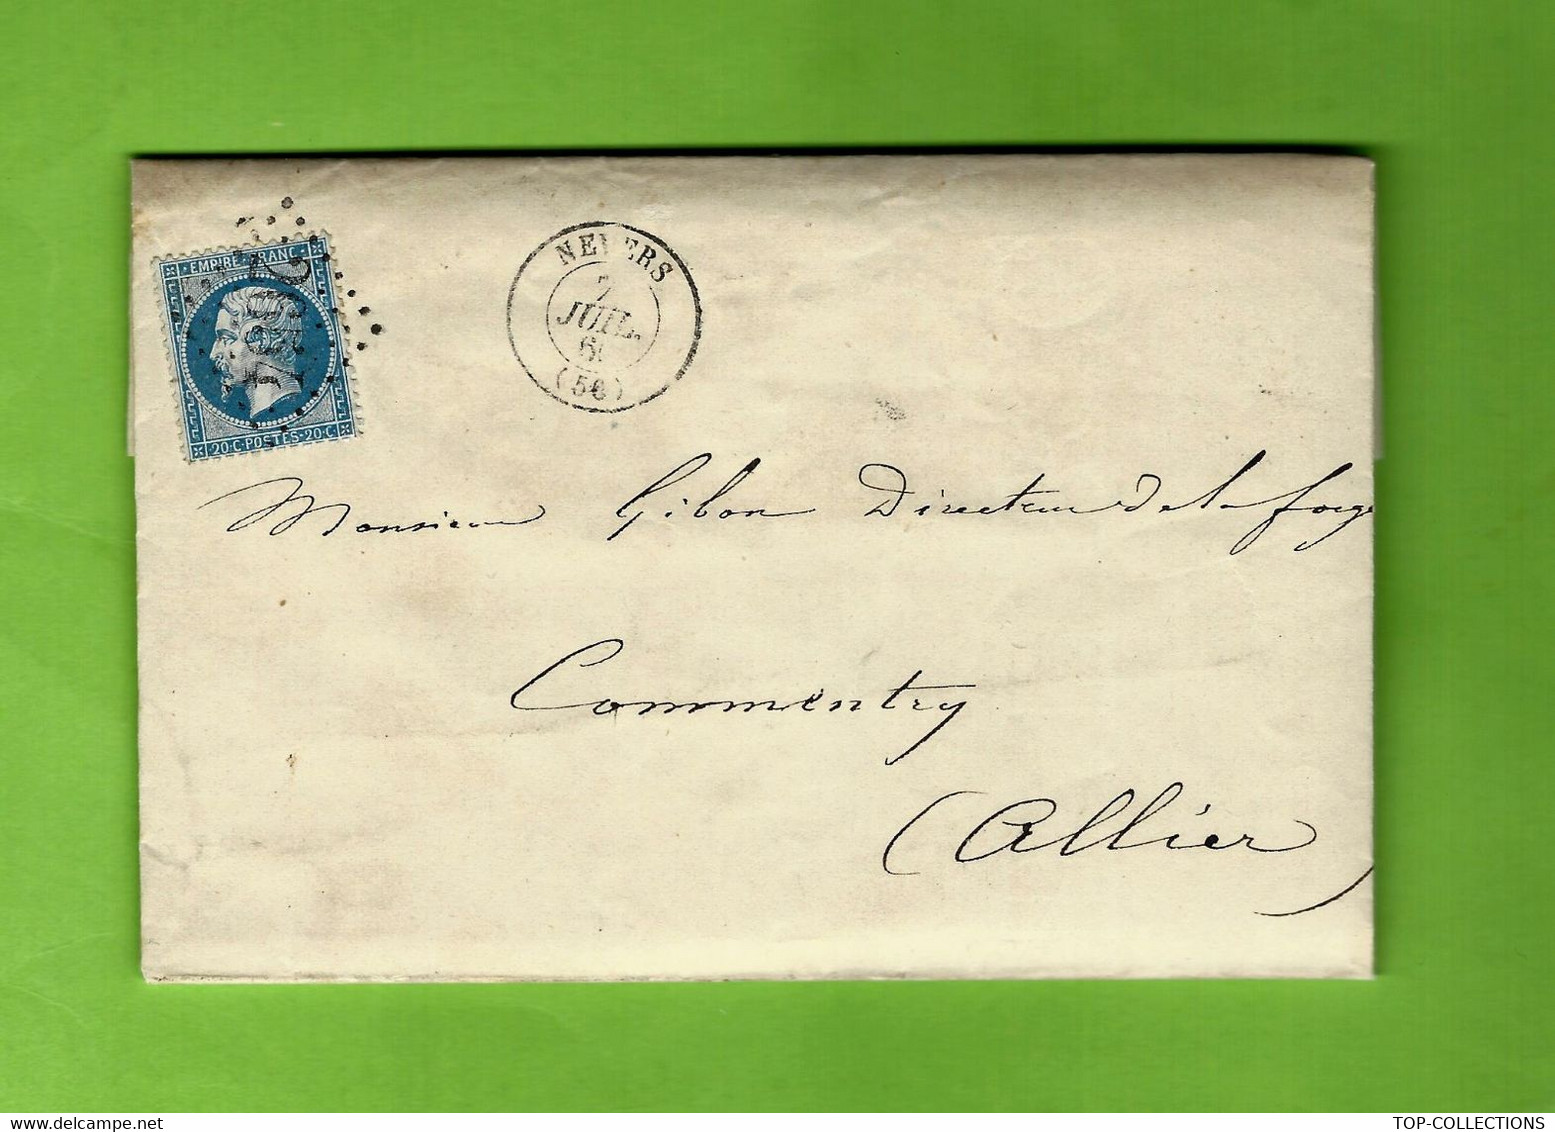 EMPIRE FRANC
2654
20·C·POSTES·20·C
NEVERS
7
JUIL.
(56)
Monsieur Gibon Directeur de la forge
Commentry
(Allier)
TOP-COLLECTIONS